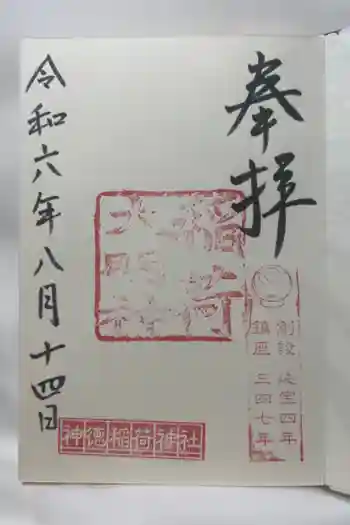 奉拝
稲荷
創設 延宝四年
鎮座 三四七年
令和六年八月十四日
神徳稲荷神社